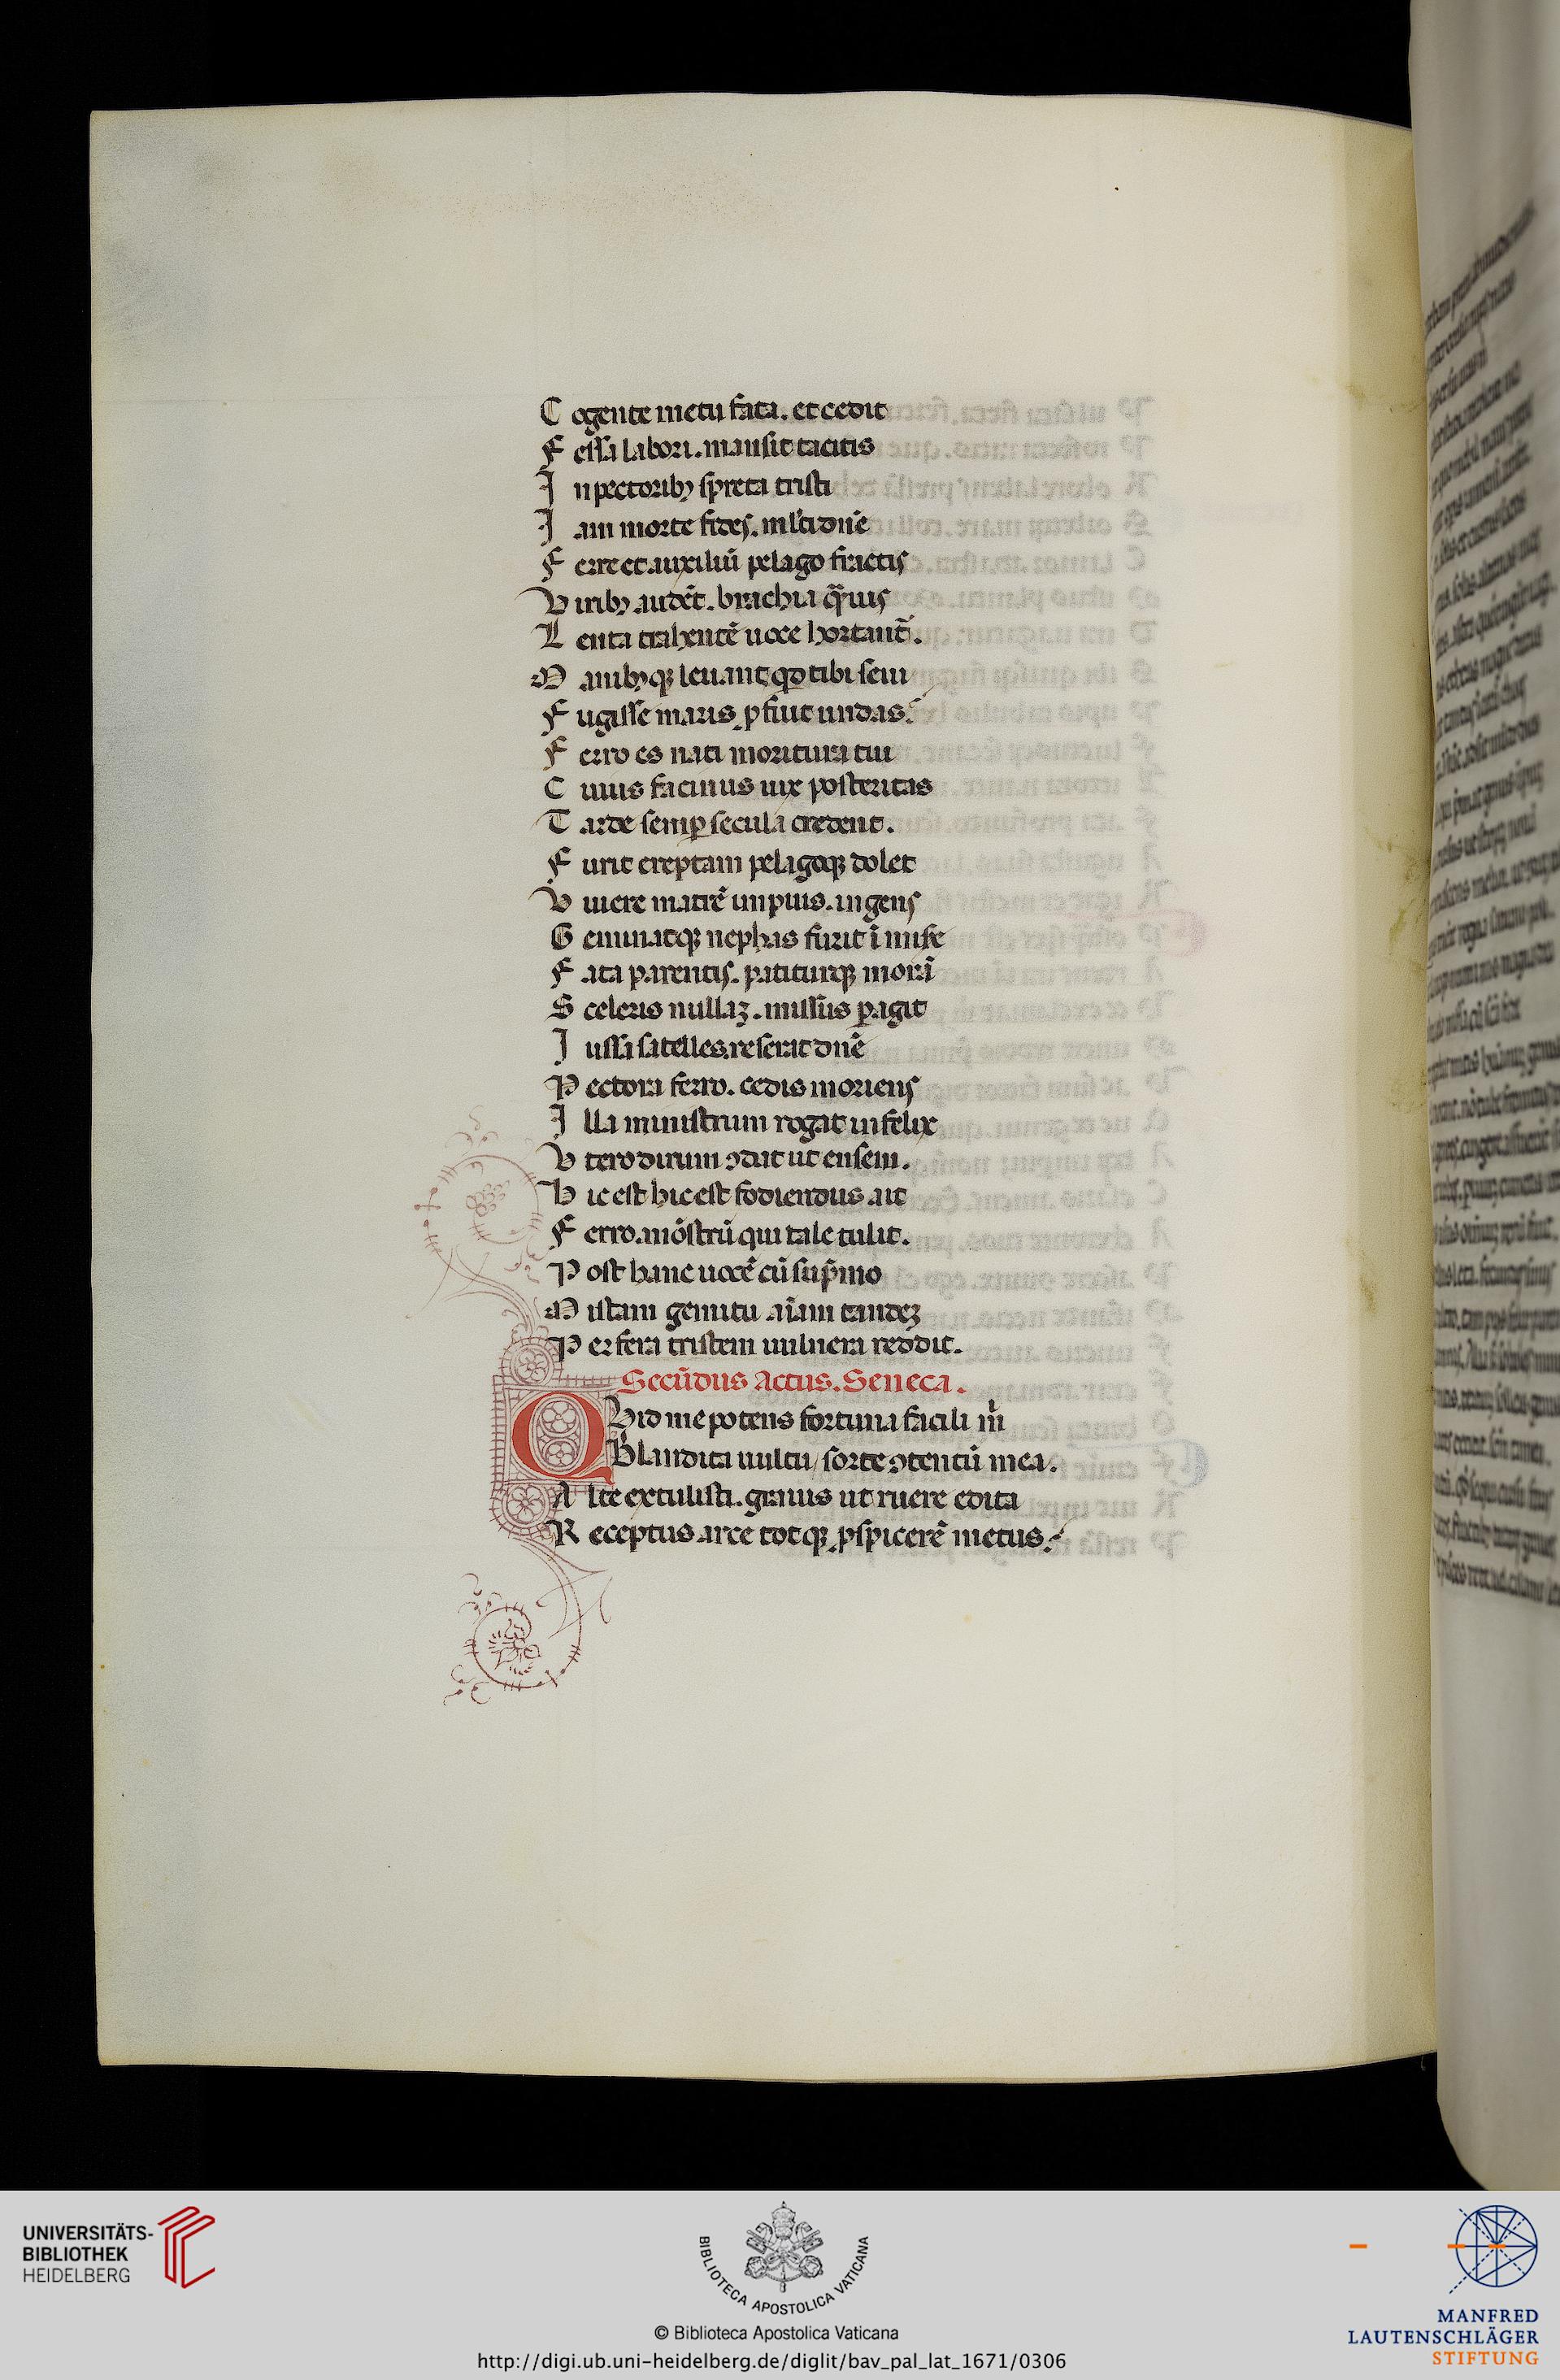 C ogente metu fata. et cedit
F essa labori. mansit tacitis
I n pectoribꝫ spreta tristi
I am morte fides. ml̄ti dn̄e
F erre et auxiliū pelago fractis
V iribꝫ audēt. brachia qͣuis
L enta trahentē uoce hortant̄.
M anibꝫqꝫ leuant qd̄ tibi seui
F ugisse maris ꝓfuit undas.
F erro es nati moritura tui
C uius facinus uix posteritas
T arde semꝑ secula credent.
F urit ereptam pelagoqꝫ dolet
V iuere matrē impius. ingens
G eminatqꝫ nephas furit ī mise
F ata parentis. patiturqꝫ morā
S celeris nullaꝫ. missus ꝑagit
I ussa satelles. reserat dn̄e
P ectora ferro. cedis moriens
I lla ministrum rogat infelix
V tero dirum ꝯdat ut ensem.
H ic est hic est fodiendus ait
F erro. mōstrū qui tale tulit.
P ost hanc uocē cū sup̄mo
M istam gemitu aīam tandeꝫ
P er fera tristem uulnera reddit.
Secūdus Actus. Seneca.
QVid me potens fortuna facili m̄
Blandita uultu / sorte ꝯtentū mea.
A lte extulisti. grauis ut ruere edita
R eceptus arce totqꝫ ꝓspicerē metus.
UNIVERSITÄTS-
BIBLIOTHEK
HEIDELBERG
BIBLIOTECA APOSTOLICA VATICANA
© Biblioteca Apostolica Vaticana
http://digi.ub.uni-heidelberg.de/diglit/bav_pal_lat_1671/0306
MANFRED
LAUTENSCHLÄGER
STIFTUNG